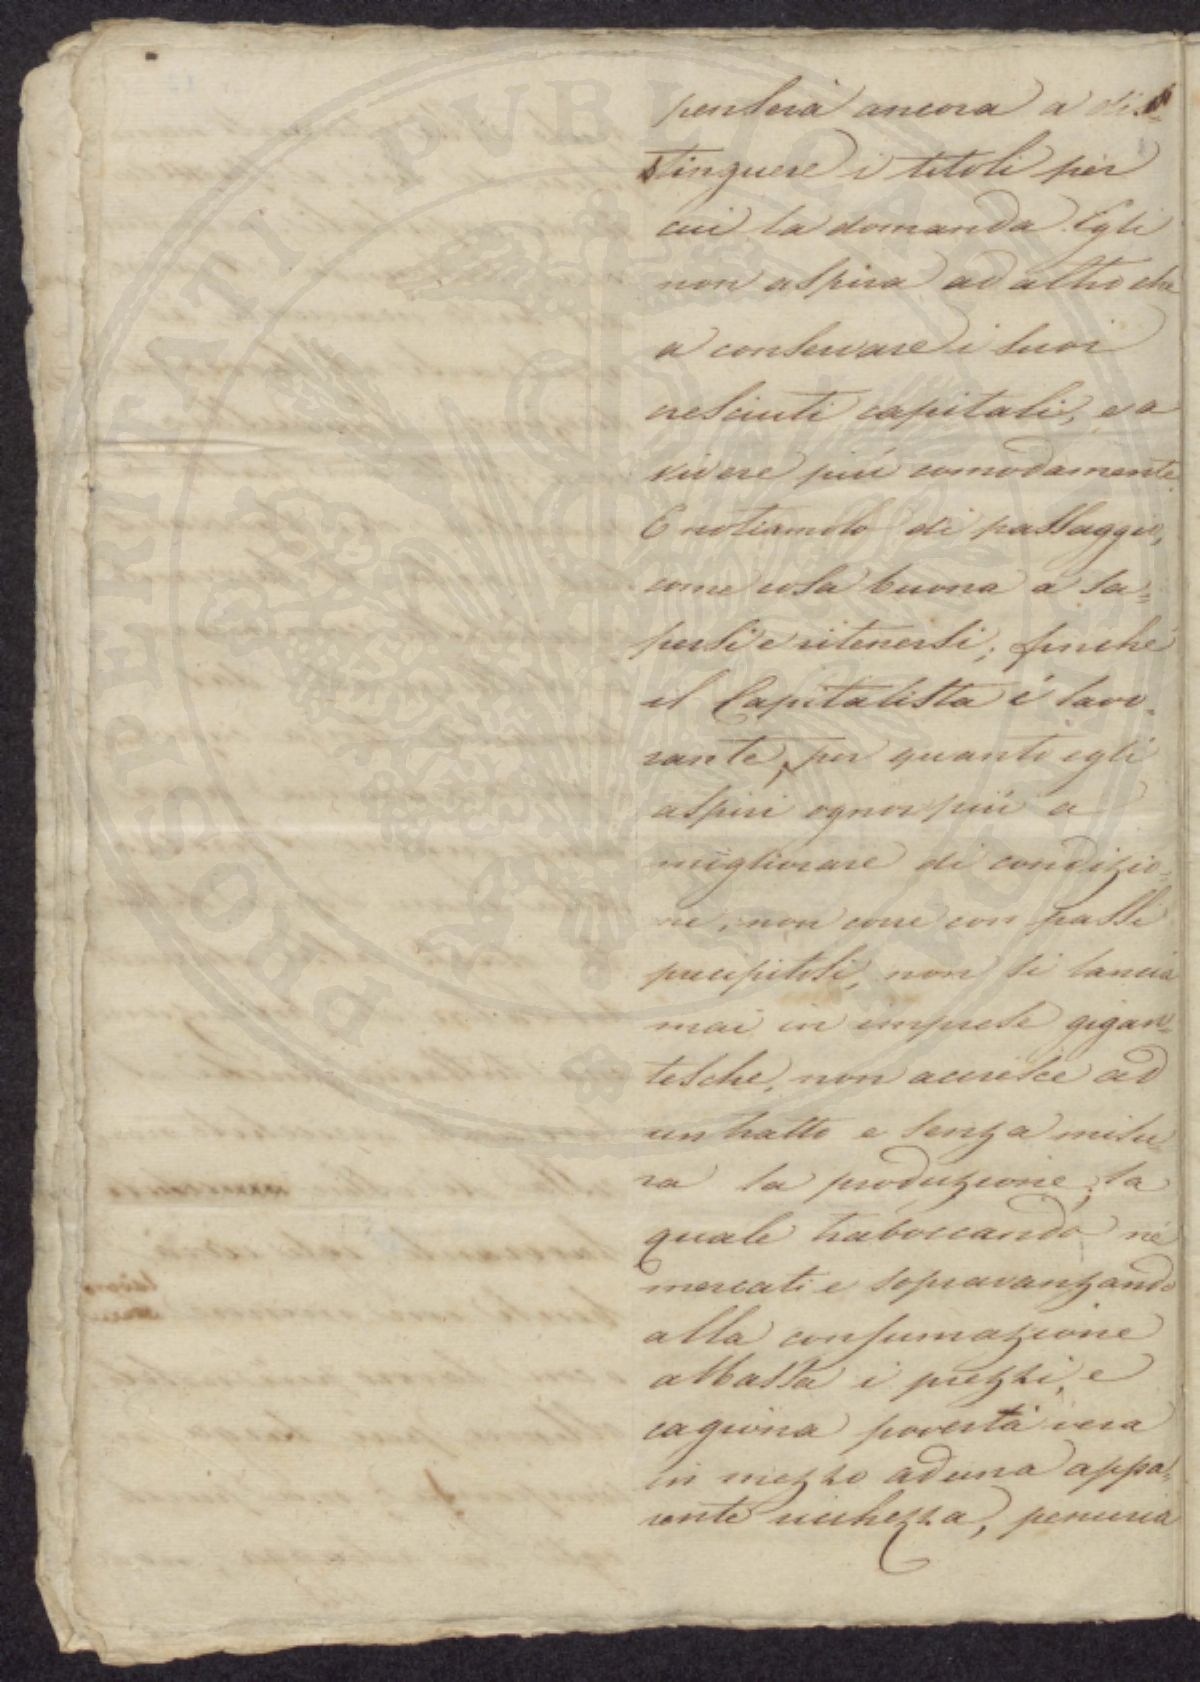 penserà ancora a di=
stinguere i titoli per
cui la domanda. Egli
non aspira ad altro che
a conservare i suoi
cresciuti capitali, e a
vivere più comodamente.
E notiamolo di passaggio,
come cosa buona a sa=
persi e ritenersi; finchè
il Capitalista è lavo=
rante, per quanto egli
aspiri ognor più a
migliorare di condizio=
ne, non corre con passi
precipitosi, non si lancia
mai in imprese gigan=
tesche, non accresce ad
un tratto e senza misu
ra la produzione, la
quale traboccando ne'
mercati e sopravanzando
alla consumazione
abbassa i prezzi, e
cagiona povertà vera
in mezzo ad una appa=
rente ricchezza, penuria
PROSPERITATI PVBLICAE